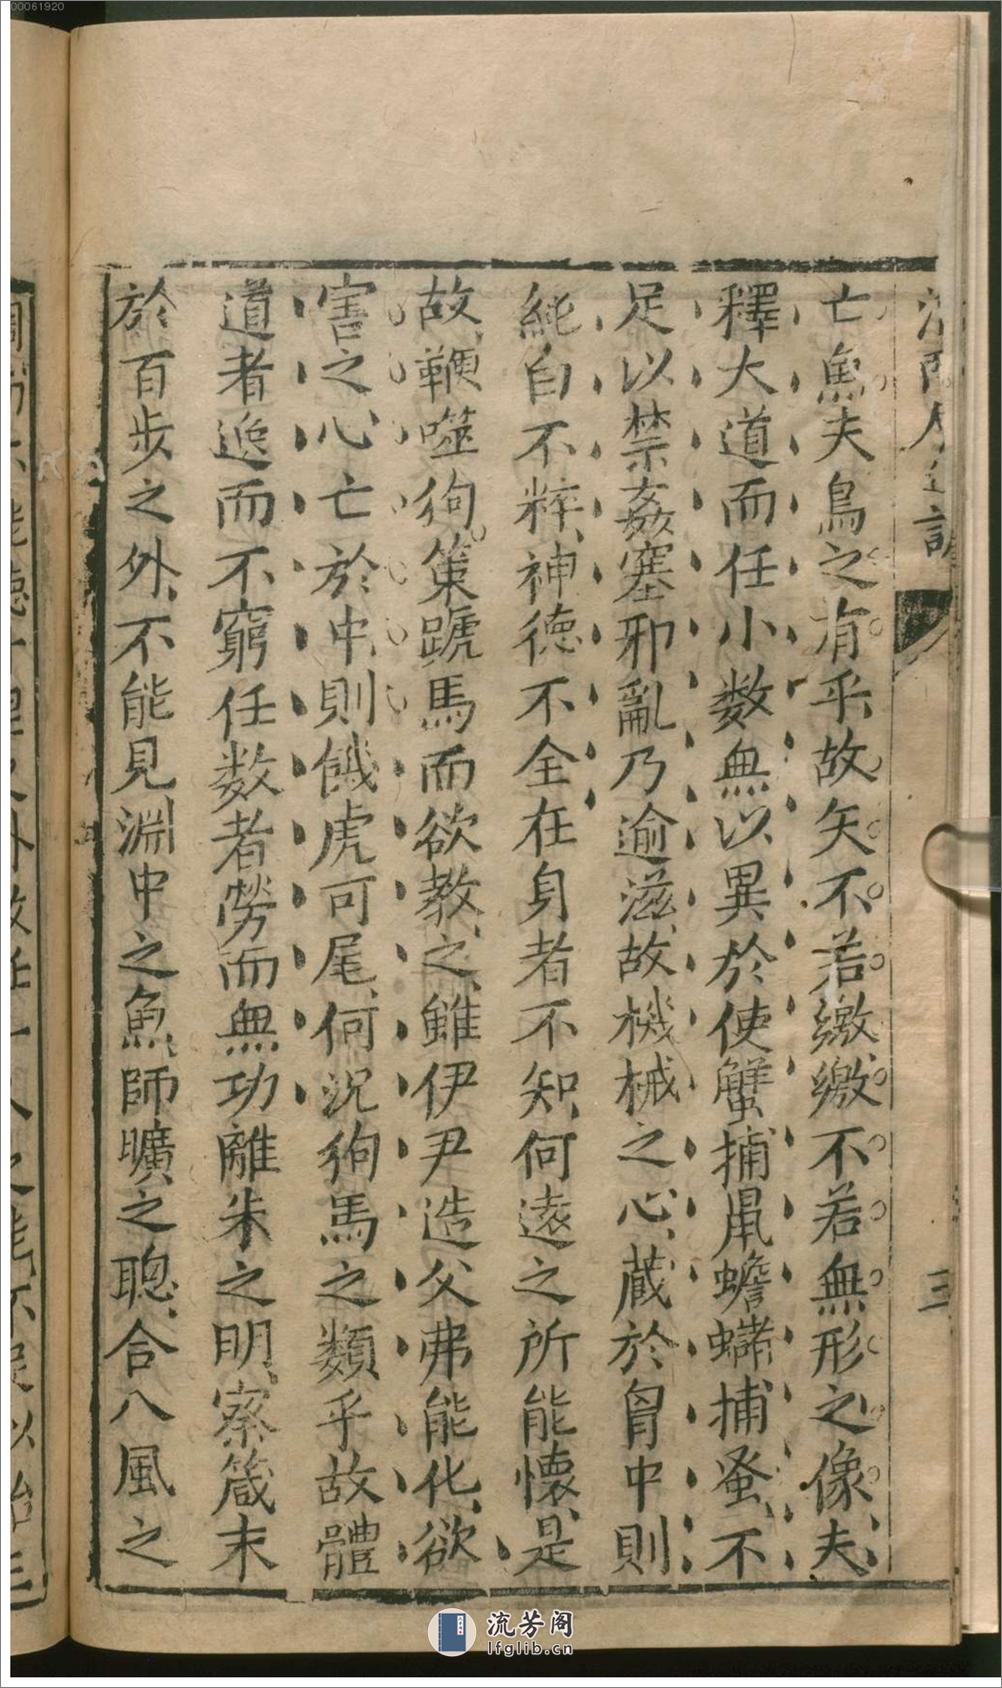 00061920
三
亡魚夫鳥之有乎故矢不若繳繳不若無形之像夫
釋大道而任小數無以異於使蟹捕鼠蟾蠩捕蚤不
足以禁姦塞邪亂乃逾滋故機械之心蔵於胷中則
純白不粹神德不全在身者不知何逺之所能懷是
故鞭噬狗策蹏馬而欲教之雖伊尹造父弗能化欲
害之心亡於中則餓虎可尾何況狗馬之類乎故體
道者逸而不窮任數者勞而無功離朱之明察箴末
於百步之外不能見淵中之魚師曠之聰合八風之
流芳阁
lfglib.cn